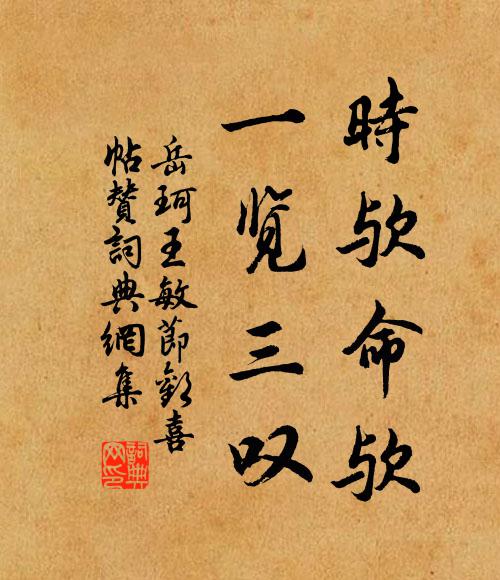 時欤命欤
一览三叹
岳珂王敏節劝喜
帖赞詞典網集
詞典